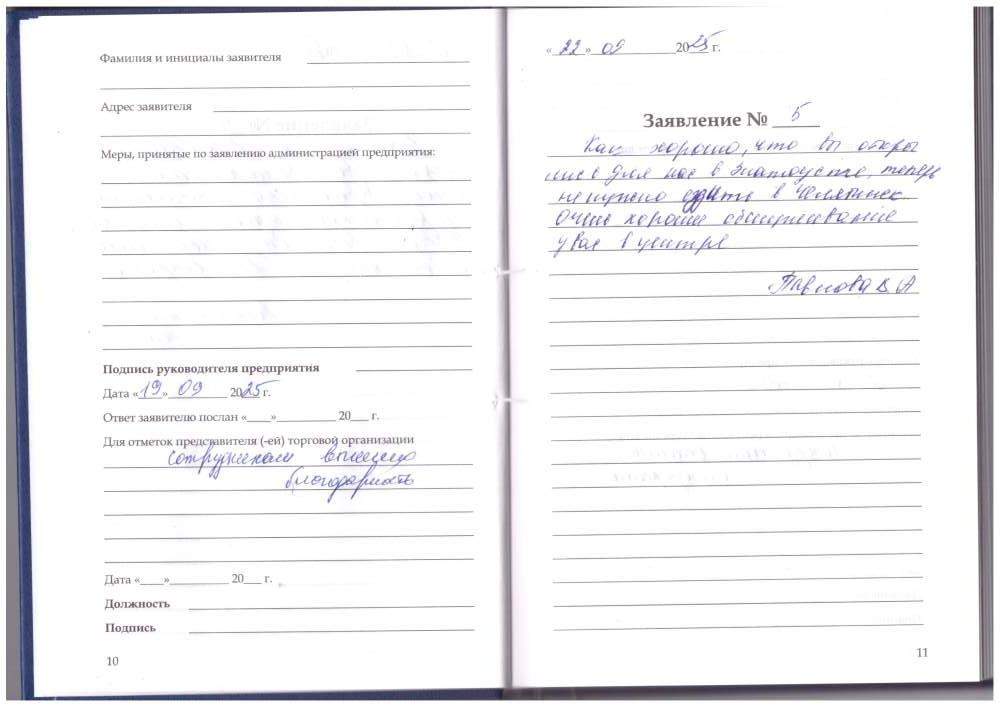 Фамилия и инициалы заявителя
Адрес заявителя
Меры, принятые по заявлению администрацией предприятия:
Подпись руководителя предприятия
Дата «19» 09 2025 г.
Ответ заявителю послан «___»__________ 20___ г.
Для отметок представителя (-ей) торговой организации
сотрудникам вынесена
благодарность
Дата «____»__________ 20___ г.
Должность
Подпись
10
«22» 09 2025 г.
Заявление № 5
Как хорошо, что вы откры
лись для нас в Златоусте, теперь
не нужно ездить в Челябинск
Очень хорошее обслуживание
у вас в центре
Павлова В А
11